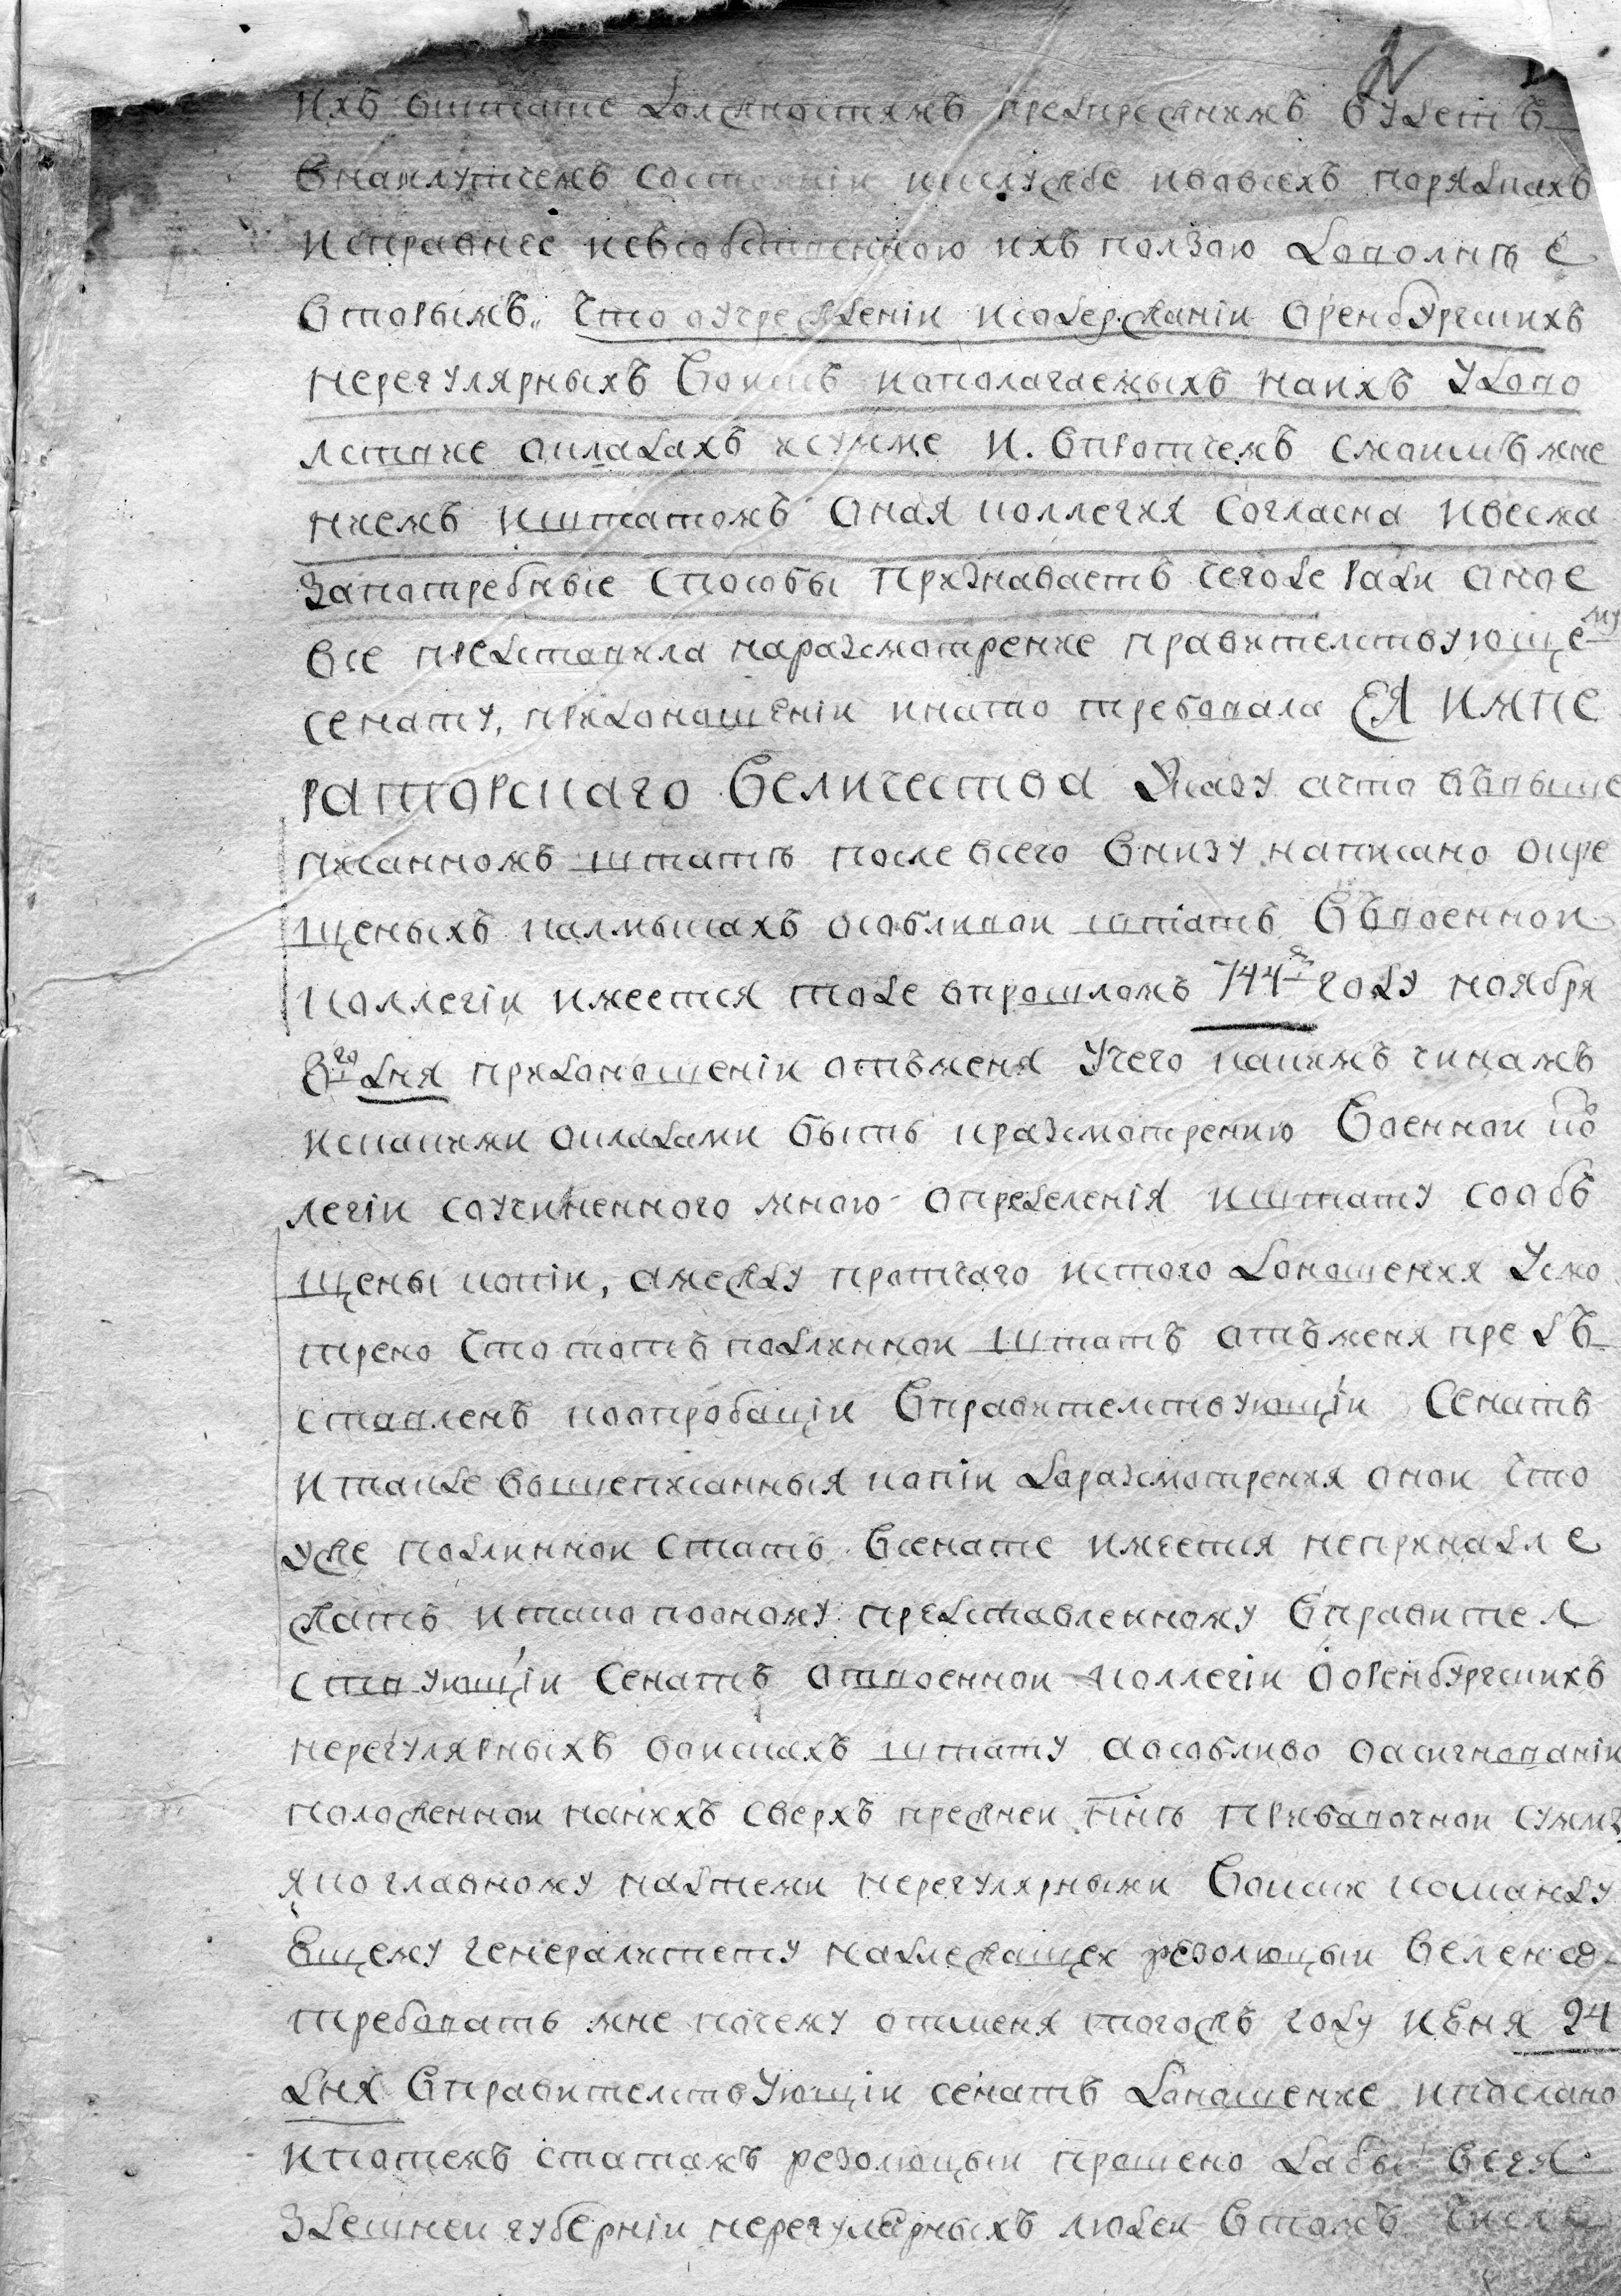 ихъ вштате должностямъ предпрежнимъ будетъ
внаилутчемъ состоянии ислужбе ивовсехъ порядкахъ
исправнее исвсобственною ихъ ползою доволны е
вторымъ„ Что оучреждении исодержании оренбургскихъ
нерегулярныхъ Воискъ иополагаемыхъ наихъ удово
лствие окладахъ исумме и. впротчемъ смоимъ мне
ниемъ иштатомъ Оная коллегия согласна ивесма
запотребные способы признаваетъ чегоде ради оное
все представила наразсмотрение правителствующему
сенату, придоношении инато требовала ЕЯ ИМПЕ
РАТОРСКАГО ВЕЛИЧЕСТВА Указу ачто въвыше
писанномъ штате после всего внизу написано окре
щеныхъ калмыкахъ особливои штатъ Въвоеннои
Коллегіи имеется тоде впрошломъ 744м году ноября
8го дня придоношеніи отъменя Учего какимъ чинамъ
искакими окладами быть кразсмотрению Военнои ко
легіи сочиненного мною определенія иштату сооб
щены копіи, амежду протчаго истого доношения усмо
трено Что тотъ подлиннои штатъ отъменя предъ
ставленъ коопробаціи Вправителствующіи Сенатъ
итакде вышеписанныя копіи доразсмотрения онои что
уже подлиннои статъ Всенате имеется непринадле
жатъ итако пооному представленному Вправител
ствующіи Сенатъ отвоеннои Коллегіи Оорембургскихъ
нерегулярныхъ воискахъ штату аособливо оасигнованіи
положеннои наихъ сверхъ прежнеи прибавочнои сумме
яко главному надтеми нерегулярными Воиски команду
ющему генералитету надлежащеи резолюцыи велено
требовать мне почему отменя тогожъ году июня 24
дня Вправителствующіи сенатъ доношение ипослано
ипотемъ статамъ резолюцыи прошено дабы всея
здешнеи губерніи нерегулярныхъ людеи Втомъ числе